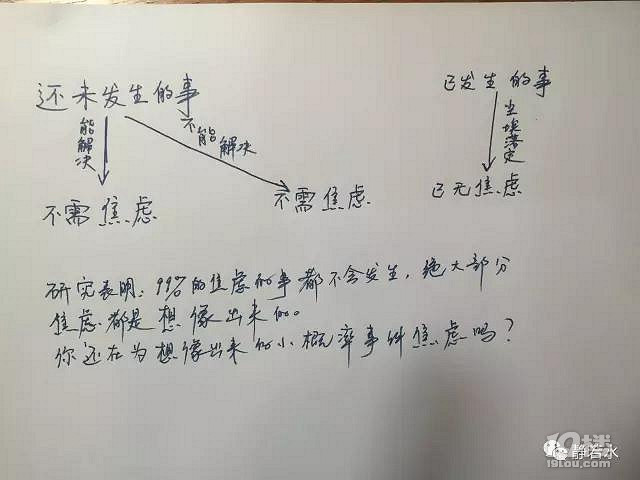 还未发生的事
能解决
不能解决
不需焦虑
不需焦虑
已发生的事
尘埃落定
已无焦虑
研究表明：99%的焦虑的事都不会发生，绝大部分
焦虑都是想像出来的。
你还在为想像出来的小概率事件焦虑吗？
静若水
19楼
19lou.com